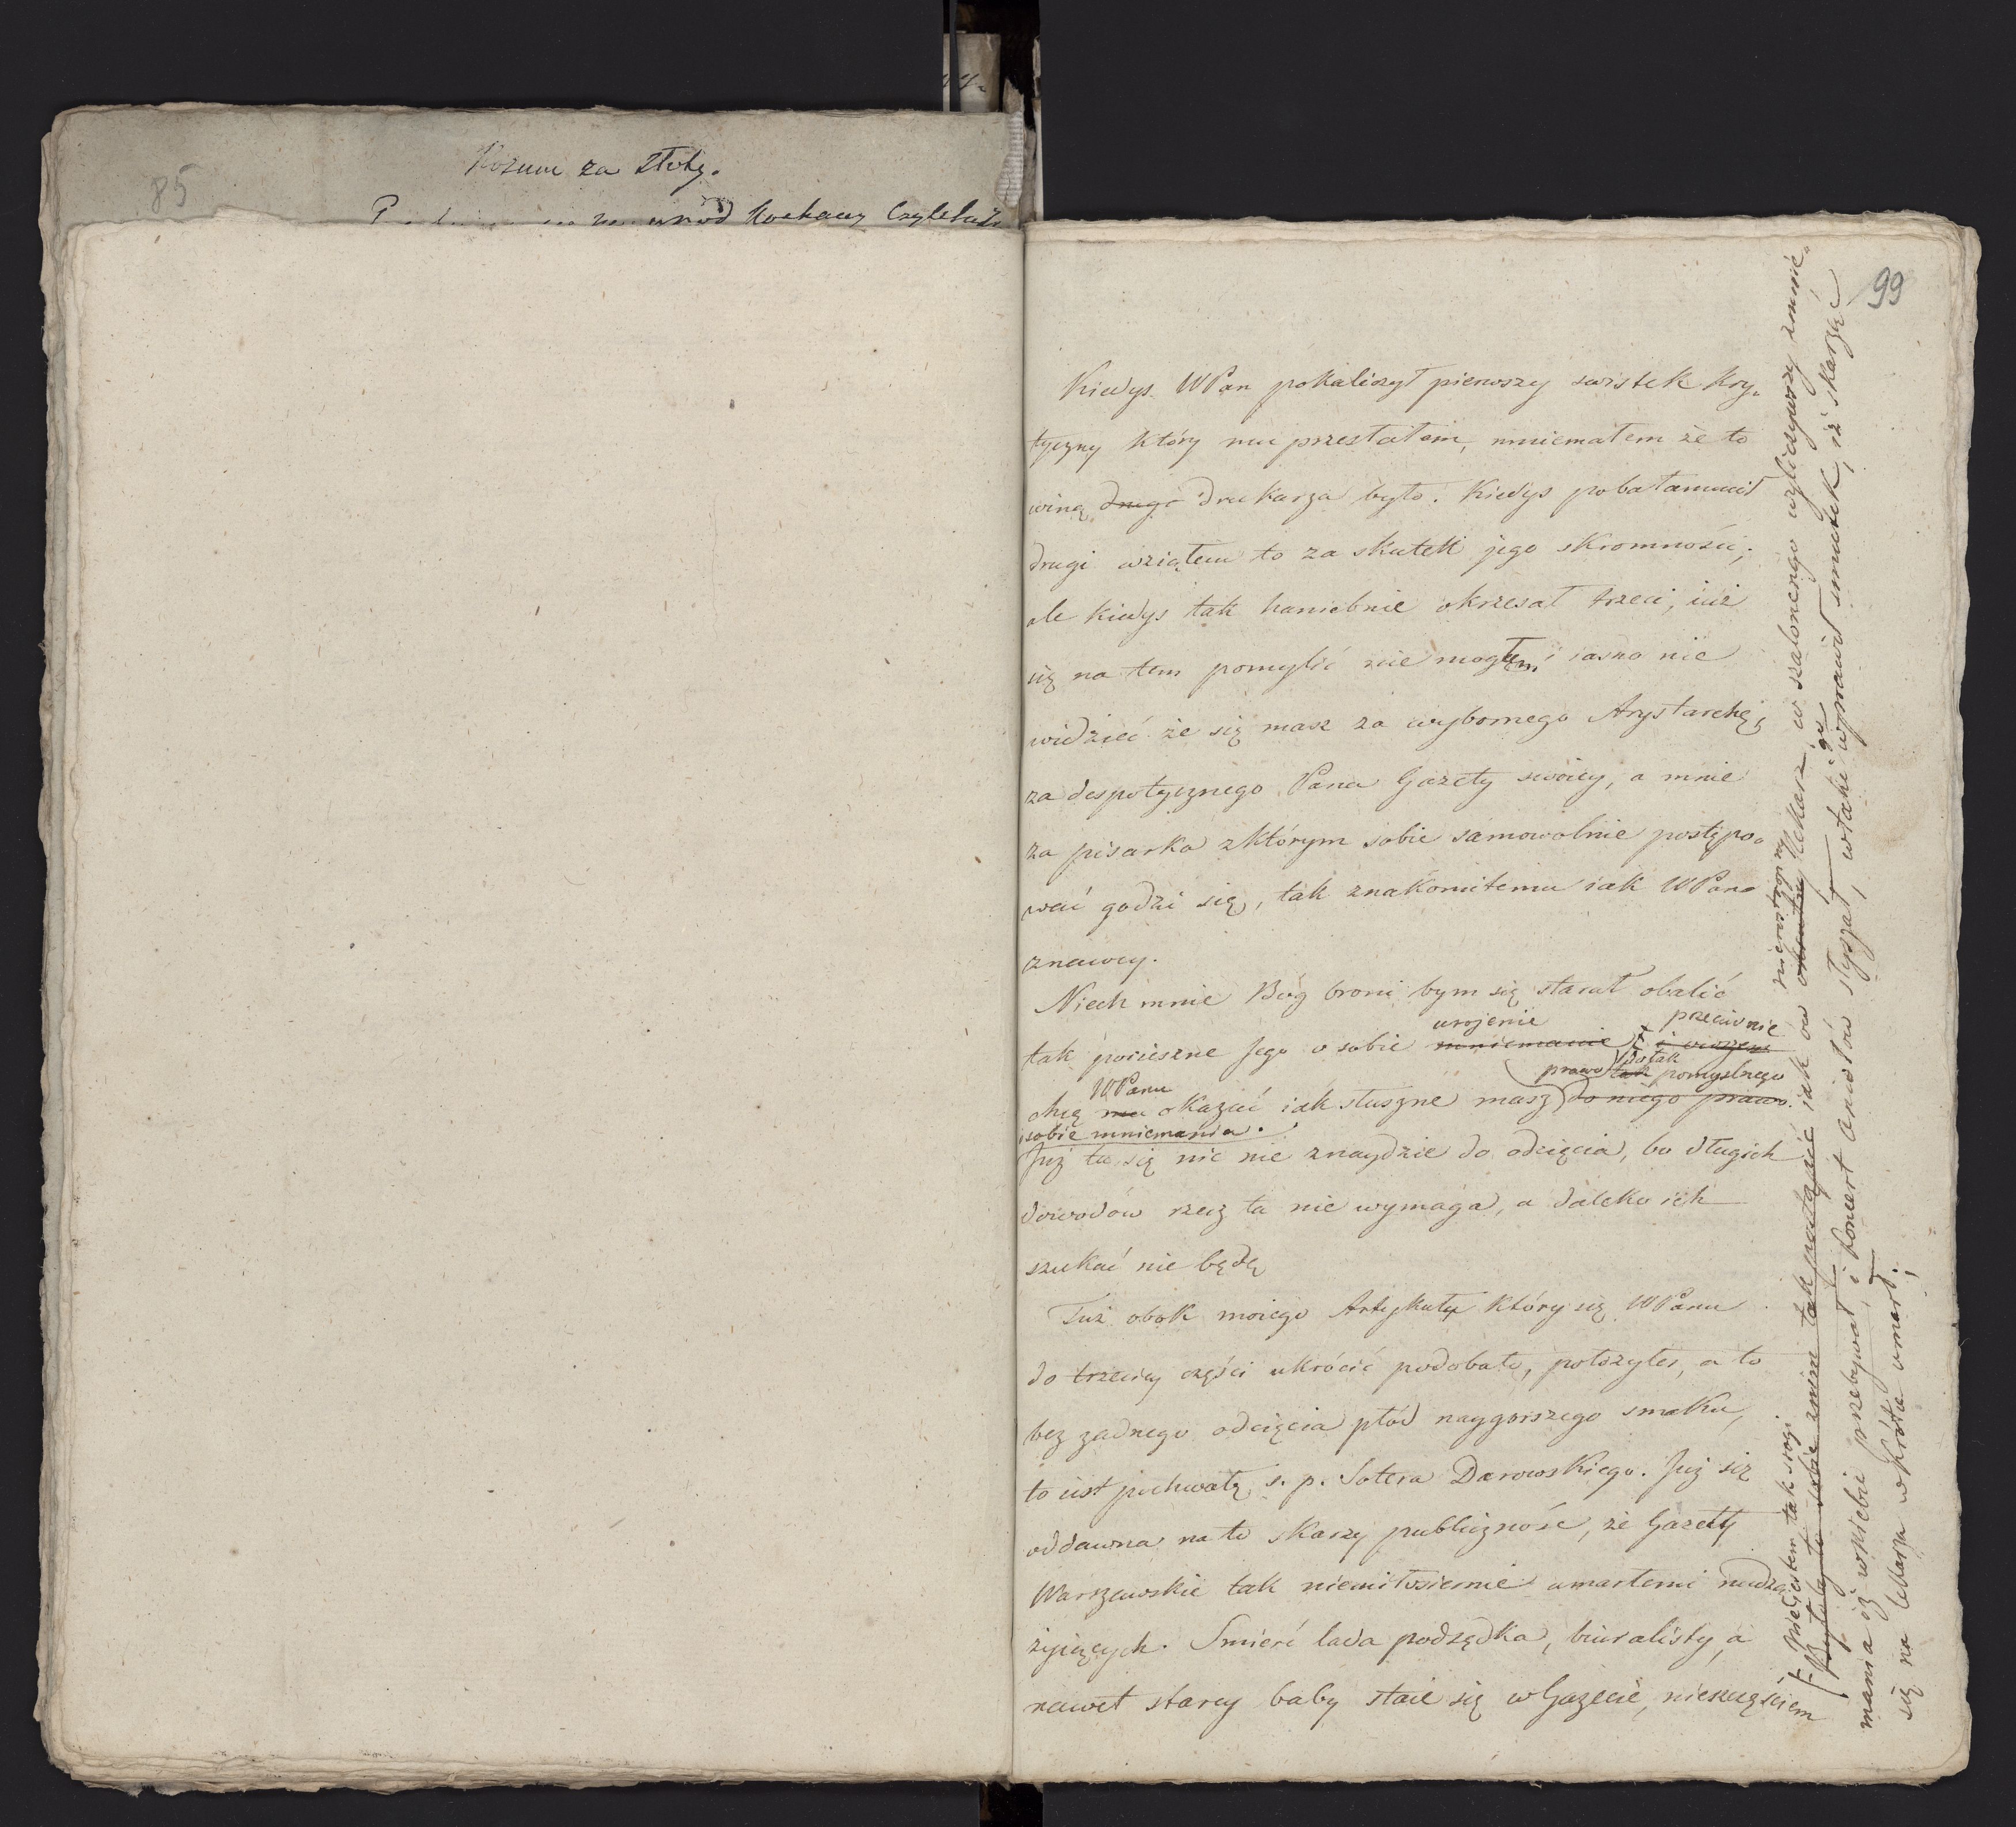 85
Rozum za Złoty.
wśród kochany
99
Kiedyś WPan pokaliczył pierwszy swistek kry-
tyczny który mu przesłałem, mniemałem że to
winą drugi drukarza było. Kiedyś pobałamucił
drugi wziąłem to za skutek jego skromności;
ale kiedyś tak haniebnie okrzesał trzeci, iuż
się na tem pomylić nie mogłem i iasno nie
widzieć że się masz za wybornego Arystarchę,
za despotycznego Pana Gazety swoiey, a mnie
za pisarka z którym sobie samowolnie postępo-
wać godzi się, tak znakomitemu iak WPan
znawcy.
Niech mnie Bóg broni bym się starał obalić
urojenie przeciwnie
tak pocieszne Jego o sobie mniemanie i owszem
prawo do tak tak pomyślnego
WPanu
chcę mu okazać iak słuszne masz do niego prawo.
o sobie mniemania.
Już tu się nic nie znaydzie do odcięcia, bo długich
dowodów rzecz ta nie wymaga, a daleko ich
szukać nie będę
Tuż obok moiego Artykułu który się WPanu
do trzeciey części ukrócić podobało, położyłeś, a to
bez żadnego odcięcia płód naygorszego smaku,
to iest pochwałę ś. p. Sotera Darowskiego. Już się
oddawna na to skarży publiczność, że Gazety
Warszawskie tak niemiłosiernie umarłemi nudzą
żyiących. Smierć lada podsędka, biuralisty, a
nawet starey baby staie się w Gazecie, nieszczęściem
Nie iestem tak srogi
niezręczny
sobie tak postąpić iak ów okrutny lekarz, w szalonego wyliczywszy zmnie-
mania iż w niebie przebywał, i koncert aniołów słyszał, w taki go wprawił smutek, iż skarżąc
się na lekarza wkrótce umarł;